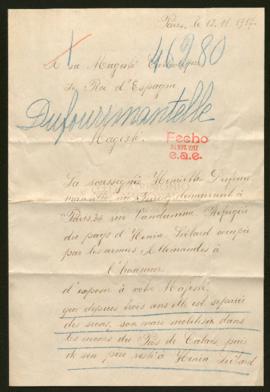 Paris, le 12. 11. 1917
46280
A sa Majesté
le Roi d'Espagne
Dufourmantelle
Majesté.
Fecho
NOV. 1917
C.a.e.
La soussignée Henriette
à
Paris, 36 rue Réfugiée
du pays d'Hénin Liétard occupé
par les armées Allemandes à
l'honneur
d'exposer à votre Majesté,
que depuis trois ans elle est séparée
des siens, son mari mobilisé dans
les mines du Pas de Calais puis
de son père resté à Hénin Liétard